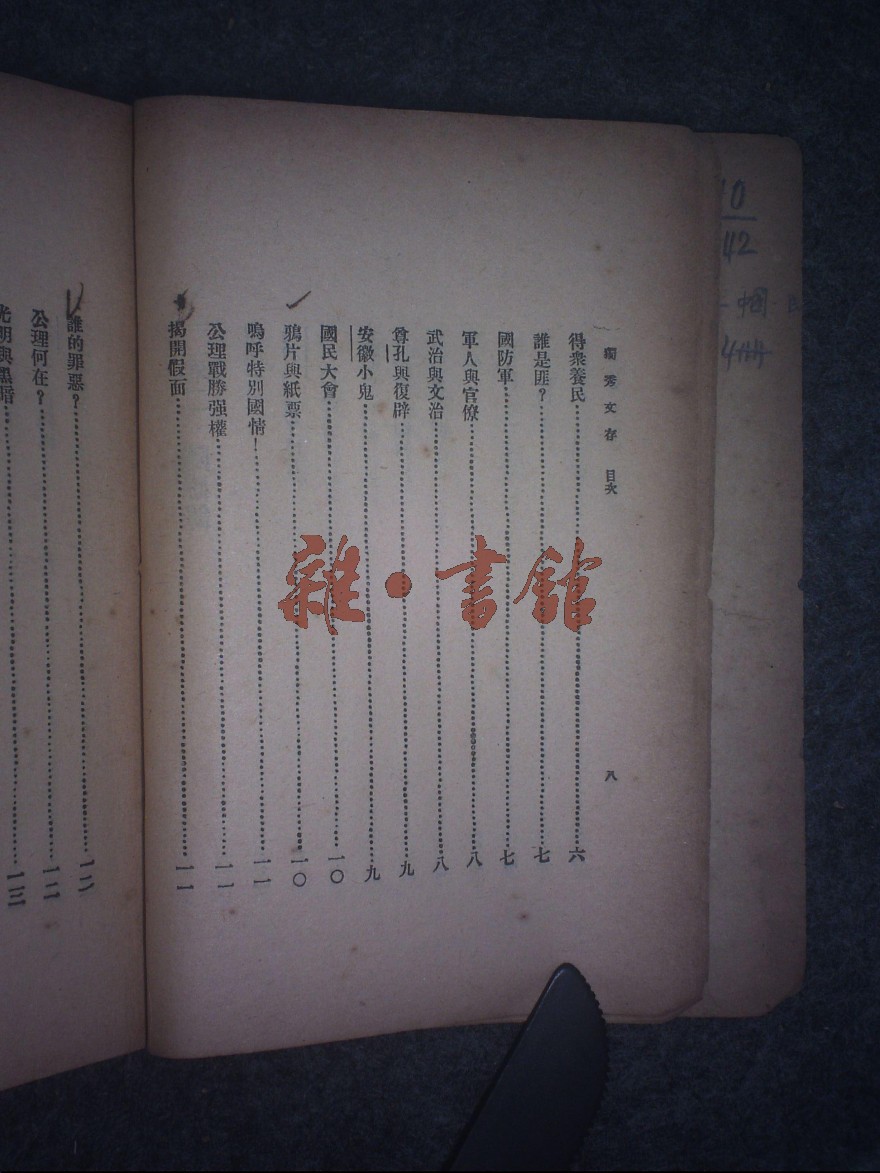 獨秀文存 目次 八
得衆養民 六
誰是匪？ 七
國防軍 七
軍人與官僚 八
武治與文治 八
尊孔與復辟 九
安徽小鬼 九
國民大會 一〇
鴉片與紙票 一〇
嗚呼特別國情！ 一一
公理戰勝强權 一一
揭開假面 一一
誰的罪惡？ 一二
公理何在？ 一二
光明與黑暗 一三
雜·書館
42
中国